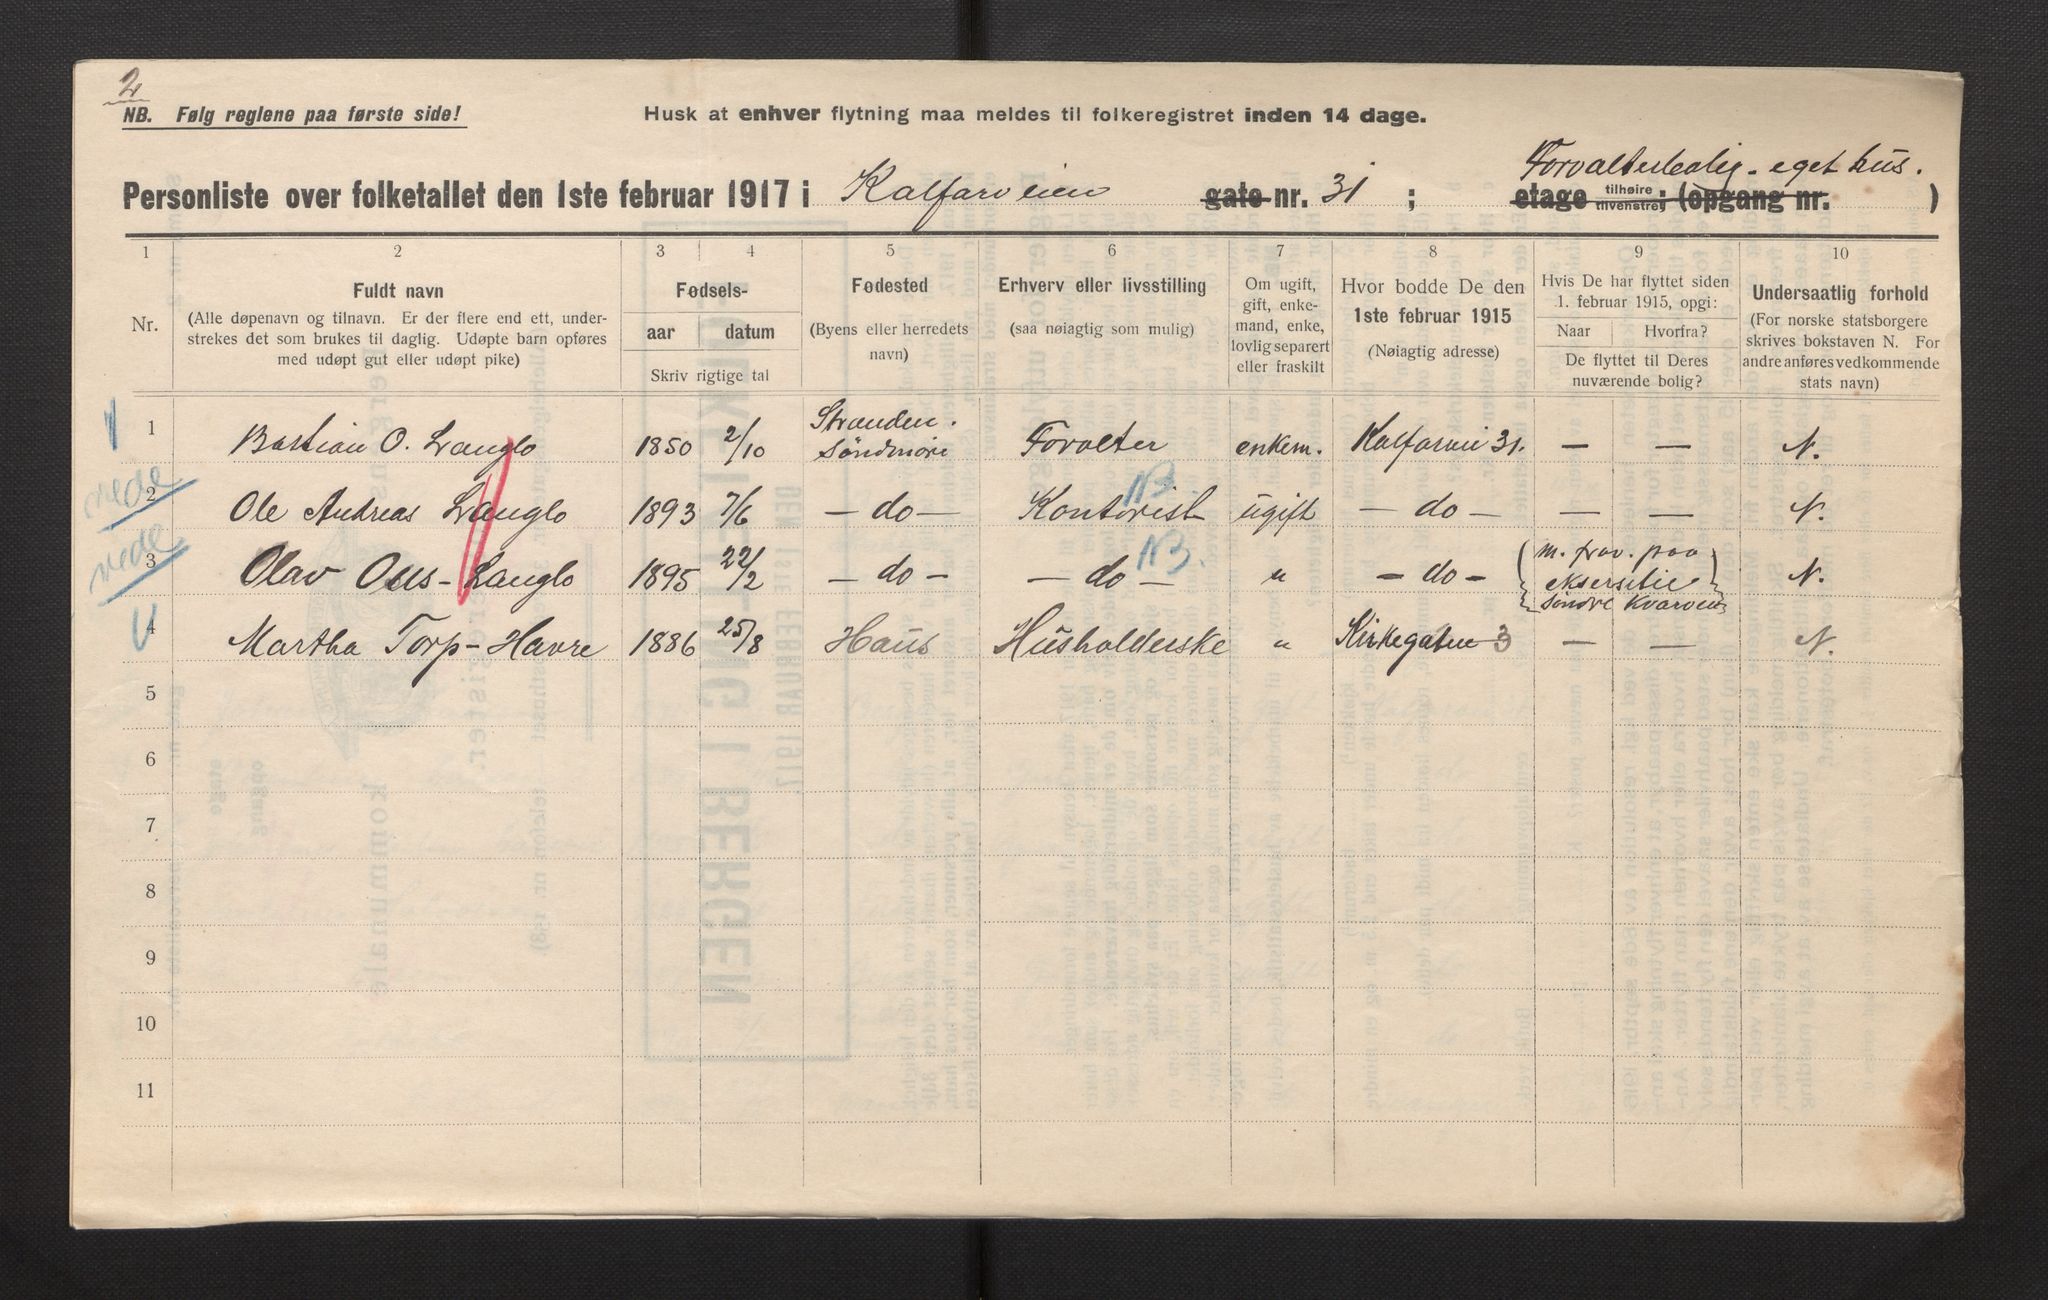 2
NB. Følg reglene paa første side!
Husk at enhver flytning maa meldes til folkeregistret inden 14 dage.
Forvalterbolig - eget hus.
Personliste over folketallet den 1ste februar 1917 i Kalfarveien gate nr. 31 ; etage tilhøire tilvenstre; (opgang nr. )
1 2 3 4 5 6 7 8 9 10
Nr.
Fuldt navn
(Alle døpenavn og tilnavn. Er der flere end ett, under-
strekes det som brukes til daglig. Udøpte barn opføres
med udøpt gut eller udøpt pike)
Fødsels-
aar datum
Skriv rigtige tal
Fødested
(Byens eller herredets
navn)
Erhverv eller livsstilling
(saa nøiagtig som mulig)
Om ugift,
gift, enke-
mand, enke,
lovlig separert
eller fraskilt
Hvor bodde De den
1ste februar 1915
(Nøiagtig adresse)
Hvis De har flyttet siden
1. februar 1915, opgi:
Naar Hvorfra?
De flyttet til Deres
nuværende bolig?
Undersaatlig forhold
(For norske statsborgere
skrives bokstaven N. For
andre anføres vedkommende
stats navn)
1 Bastian O. Langlo 1850 2/10 Stranden. Søndmøre Forvalter enkem. Kalfarvei 31. — — N.
vede
2 Ole Andreas Langlo 1893 7/6 — do — Kontorist NB. ugift — do — — — N.
vede
3 Olav Ous - Langlo 1895 22/2 — do — — do — NB. " — do — (m. frav. paa eksersitie Søndre Kvarven) N.
4 Martha Torp - Havre 1886 25/8 Haus Husholderske " Kirkegaten 3 — — N.
5
6
7
8
9
10
11